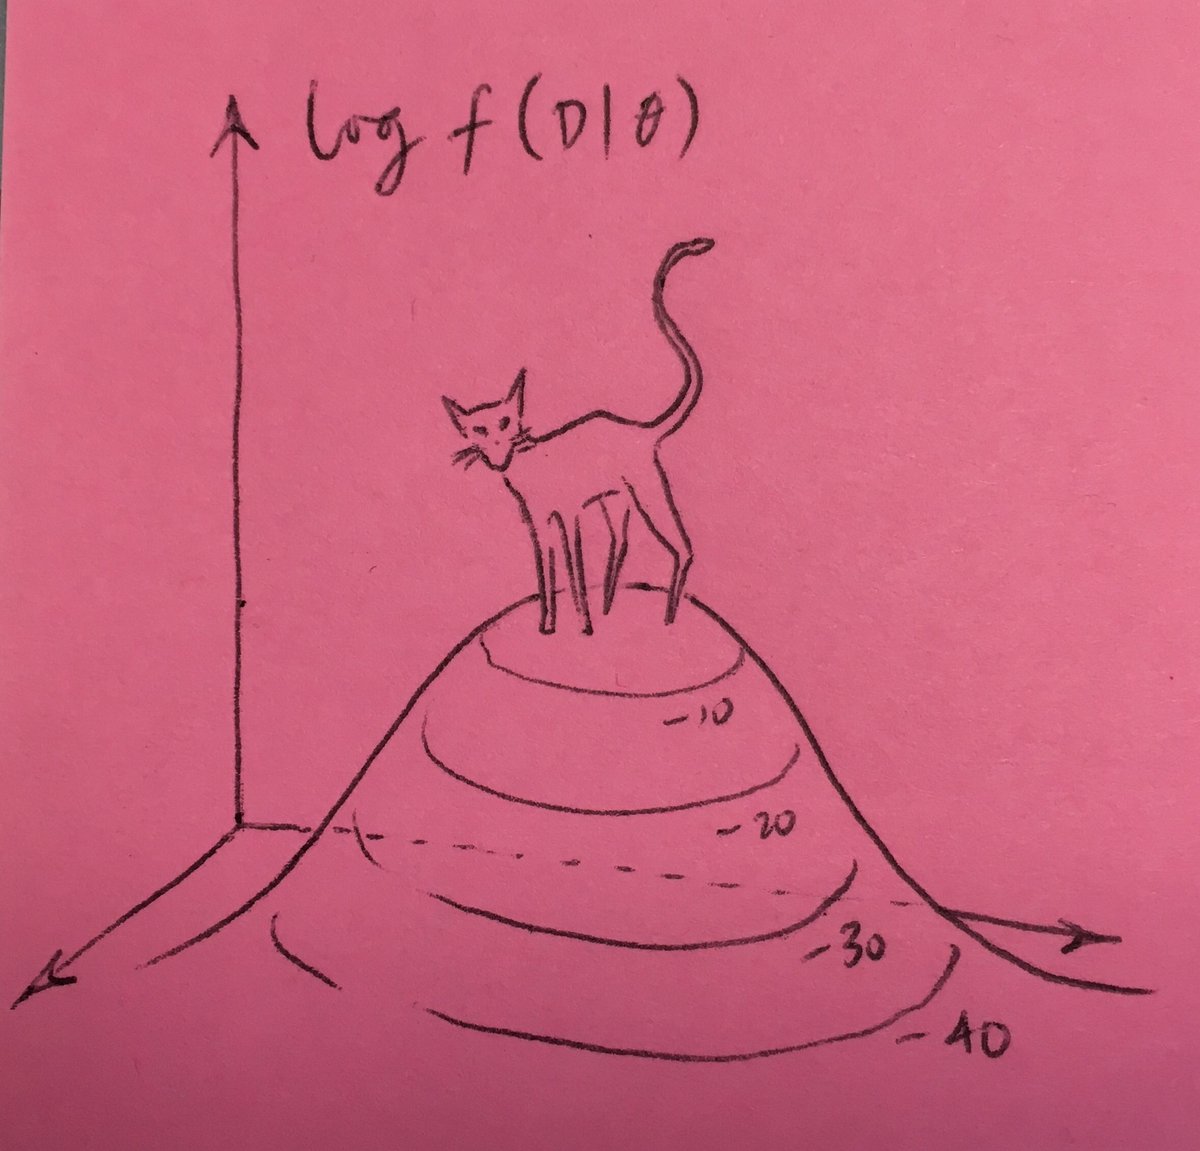 log f(D|θ)
-10
-20
-30
-40